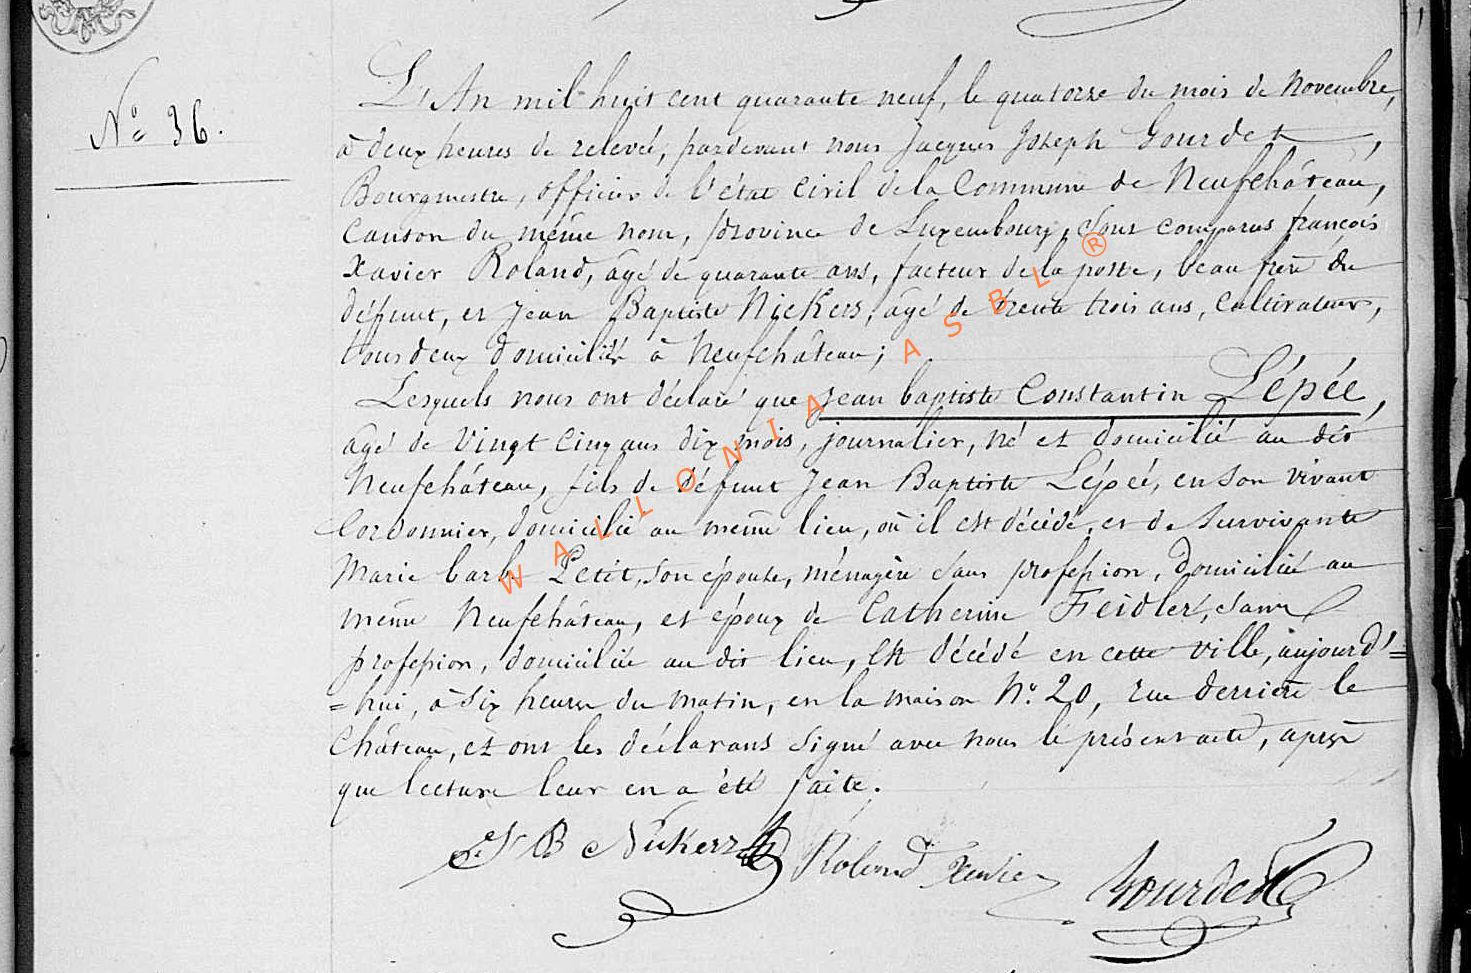 N° 36.
L'An mil huit cent quarante neuf, le quatorze du mois de Novembre,
à deux heures de relevée, pardevant nous Jacques Joseph Gourdet,
Bourgmestre, officier de l'état civil de la Commune de Neufchâteau,
Canton du même nom, province de Luxembourg, sont comparus françois
Xavier Roland, âgé de quarante ans, facteur de la poste, beau frère du
défunt, et Jean Baptiste Nickers, âgé de trente trois ans, Cultivateur,
tous deux domiciliés à Neufchâteau;
Lesquels nous ont déclaré que jean baptiste Constantin Lépée,
âgé de Vingt Cinq ans dix mois, journalier, né et domicilié au dit
Neufchâteau, fils de défunt Jean Baptiste Lépée, en son vivant
Cordonnier, domicilié au même lieu, où il est décédé, et de survivante
Marie barbe Petit, son épouse, ménagère sans profession, domiciliée au
même Neufchâteau, et époux de Catherine Feidler, sans
profession, domiciliée au dit lieu, est décédé en cette ville, aujourd'=
=hui, à six heures du matin, en la maison N° 20, rue derrière le
Château, et ont les déclarans signé avec nous le présent acte, après
que lecture leur en a été faite.
J B Nickers Roland Xavier Gourdet
WALLONIA ASBL ®